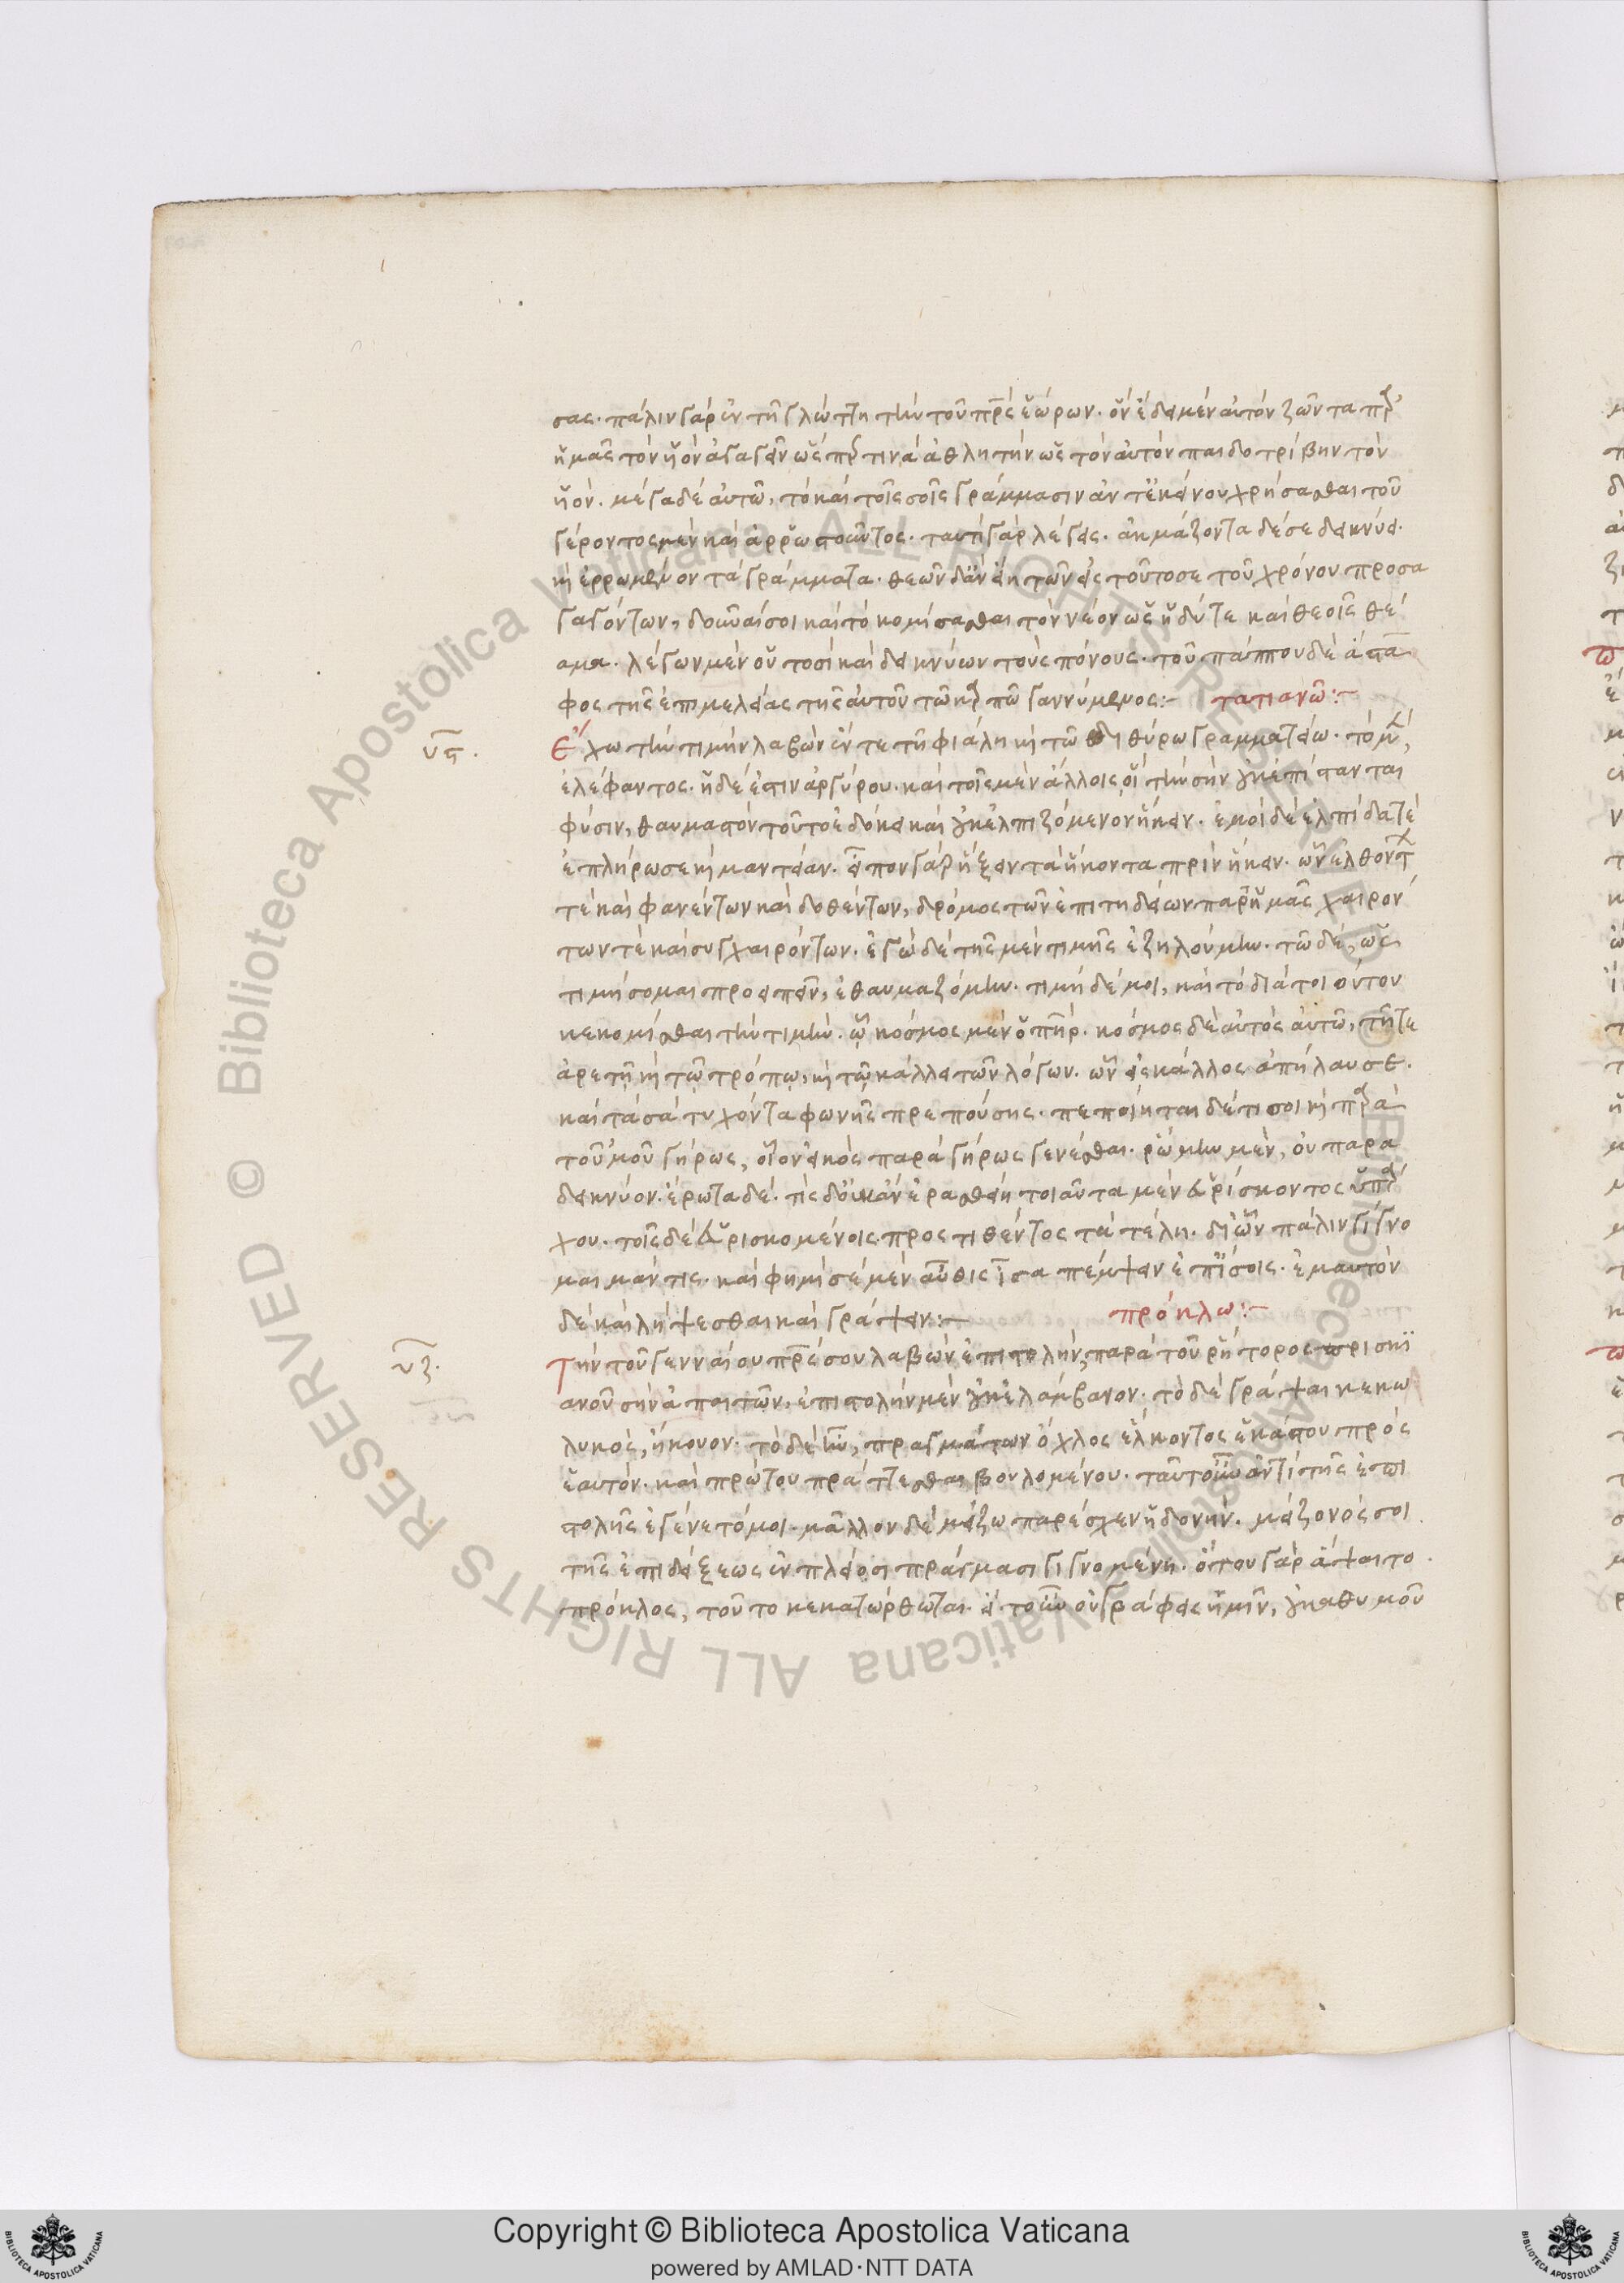 σας· πάλιν γὰρ ἐν τῇ γλώττῃ τὴν τοῦ πρς ἑώρων· οὐ εἰ μὲν αὐτὸν ζῶντα πρ
ἡμᾶς τὸν υἱὸν ἀγαγεῖν ὥσπερ τινὰ ἀθλητὴν ὡς τὸν αὐτὸν παιδοτρίβην τὸν
υἱόν. μέγα δὲ αὐτῷ, τὸ καὶ τοῖς σοῖς γράμμασιν ἀντ' ἐκείνου χρήσασθαι τοῦ
γέροντος μὲν καὶ ἀρρωστοῦντος· ταυτὶ γὰρ λέγεις· ἀκμάζοντα δέ σε δεικνύει
καὶ ἐρρωμένον τὰ γράμματα· θεῶν δ' ἂν εἴη τῶν εἰς τοῦτό σε τοῦ χρόνου προσα
γαγόντων, δοῦναί σοι καὶ τὸ κομίσασθαι τὸν νέον ὡς ἥδιστε καὶ θεοῖς θέ
αμα. λέγων μὲν οὑτοσὶ καὶ δεικνύων τοὺς πόνους· τοῦ πάππου δὲ ἅπα
φος τῆς ἐπιμελείας τῆς αὐτοῦ τῷ καρπῷ γαννύμενος:- τατιανῷ:-
υϛ.
Ἔχω τὴν τιμὴν λαβὼν ἔν τε τῇ φιάλῃ καὶ τῷ διθύρῳ γραμματείῳ· τὸ μὲν,
ἐλέφαντος· ἡ δέ ἐστιν ἀργύρου· καὶ τοῖς μὲν ἄλλοις οἳ τὴν σὴν οὐκ ἐπίστανται
φύσιν, θαυμαστὸν τοῦτο ἐδόκει καὶ οὐκ ἐλπιζόμενον ἥκειν. ἐμοὶ δὲ ἐλπίδα τε
ἐπλήρωσε καὶ μαντείαν. εἶπον γὰρ ἥξειν τὰ ἥκοντα πρὶν ἥκειν· ὧν ἐλθόντων
τε καὶ φανέντων καὶ δοθέντων, δρόμος τῶν ἐπιτηδείων παρ' ἡμᾶς χαιρόν
των τε καὶ συγχαιρόντων. ἐγὼ δὲ τῆς μὲν τιμῆς ἐζηλούμην. τῷ δὲ, ὡς
τιμήσομαι προειπεῖν, ἐθαυμαζόμην. τιμὴ δέ μοι, καὶ τὸ διὰ τοιούτου
κεκομίσθαι τὴν τιμήν. ᾧ κόσμος μὲν ὁ πηρ. κόσμος δὲ αὐτὸς αὑτῷ, τῇ τε
ἀρετῇ καὶ τῷ τρόπῳ, καὶ τῷ κάλλει τῶν λόγων. ὧν εἰς κάλλος ἀπήλαυσε.
καὶ τὰ σὰ τυχόντα φωνῆς πρεπούσης. πεποίηται δέ τι σοι καὶ παρὰ
τοὐμοῦ γήρως, οἷον εἰκὸς παρὰ γήρως γενέσθαι. ῥώμην μὲν, οὐ παρα
δεικνύον. ἔρωτα δέ. τίς δ' οὐκ ἂν ἐρασθείη τοιαῦτα μὲν εὑρίσκοντος ὑπάρ
χου. τοῖς δὲ εὑρισκομένοις προστιθέντος τὰ τέλη. δι' ὧν πάλιν γίγνο
μαι μάντις. καὶ φημὶ σὲ μὲν αὖθις ἴσα πέμψειν ἐπ' ἴσοις. ἐμαυτὸν
δὲ καὶ λήψεσθαι καὶ γράψειν:- πρόκλῳ:-
υζ.
Τὴν τοῦ γενναίου πρς σου λαβὼν ἐπιστολὴν, παρὰ τοῦ ῥήτορος πρισκι
ανοῦ σὴν ἀπαιτῶν, ἐπιστολὴν μὲν οὐκ ἐλάμβανον. τὸ δὲ γράψαι κεκω
λυκὸς, ἤκουον. τὸ δὲ ἦν, πραγμάτων ὄχλος ἕλκοντος ἑκάστου πρὸς
ἑαυτόν. καὶ πρώτου πράττεσθαι βουλομένου. ταῦτ' οὖν ἀντὶ τῆς ἐπι
στολῆς ἐγένετό μοι. μᾶλλον δὲ μείζω παρέσχεν ἡδονήν. μείζονός σοι
τῆς ἐπιδείξεως ἐν πλείοσι πράγμασι γιγνομένης. ὅτου γὰρ ἅψαιτο
πρόκλος, τοῦτο κεκατώρθωται. εἰ τοίνυν οὐ γράφεις ἡμῖν, οὐκ ἀθυμοῦ
© Biblioteca Apostolica Vaticana ALL RIGHTS RESERVED © Biblioteca Apostolica Vaticana ALL RIGHTS RESERVED
Copyright © Biblioteca Apostolica Vaticana
powered by AMLAD·NTT DATA
BIBLIOTECA APOSTOLICA VATICANA
BIBLIOTECA APOSTOLICA VATICANA